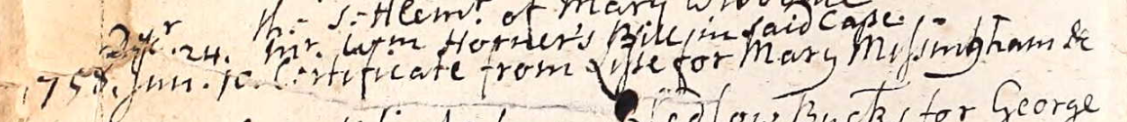 the Settlemt. of Mary
Decr. 24. Mr. Wm Horner's Bill in said Case.
1758. Jun. 10. Certificate from Lisse for Mary Missingham &c
Bledlow Bucks for George